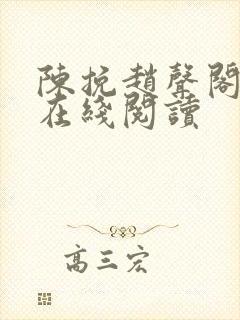 陳挩趙聲閣
在綫閱讀
高三宏